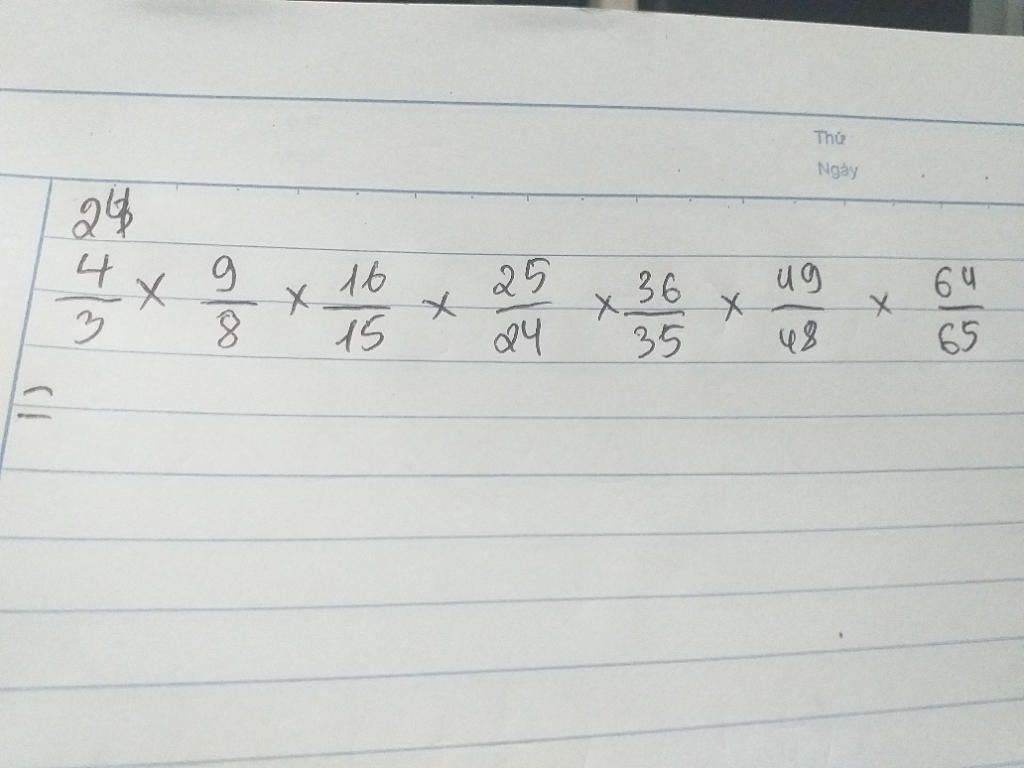 Thứ
Ngày
24
4/3 × 9/8 × 16/15 × 25/24 × 36/35 × 49/48 × 64/65
=